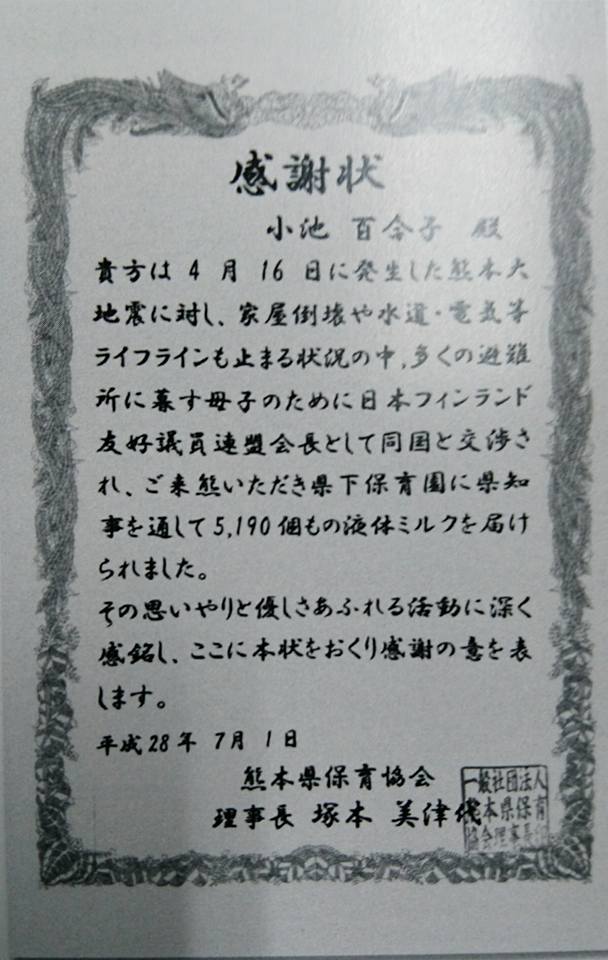 感謝状
小池 百合子 殿
貴方は 4 月 16 日に発生した熊本大
地震に対し、家屋倒壊や水道・電気等
ライフラインも止まる状況の中,多くの避難
所に暮す母子のために日本フィンランド
友好議員連盟会長として同国と交渉さ
れ、ご来熊いただき県下保育園に県知
事を通して5,190個もの液体ミルクを届け
られました。
その思いやりと優しさあふれる活動に深く
感銘し、ここに本状をおくり感謝の意を表
します。
平成28年 7月 1日
熊本県保育協会
理事長 塚本 美津代
一般社団法人
熊本県保育
協会理事長印